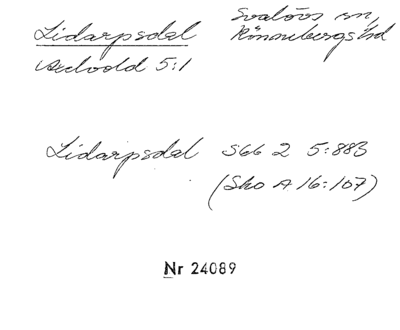 Lidarpsdal Svalövs sn,
Rönnebergs hd
Axelvold 5:1
Lidarpsdal SGG 2 5:883
(Sko A 16:107)
Nr 24089